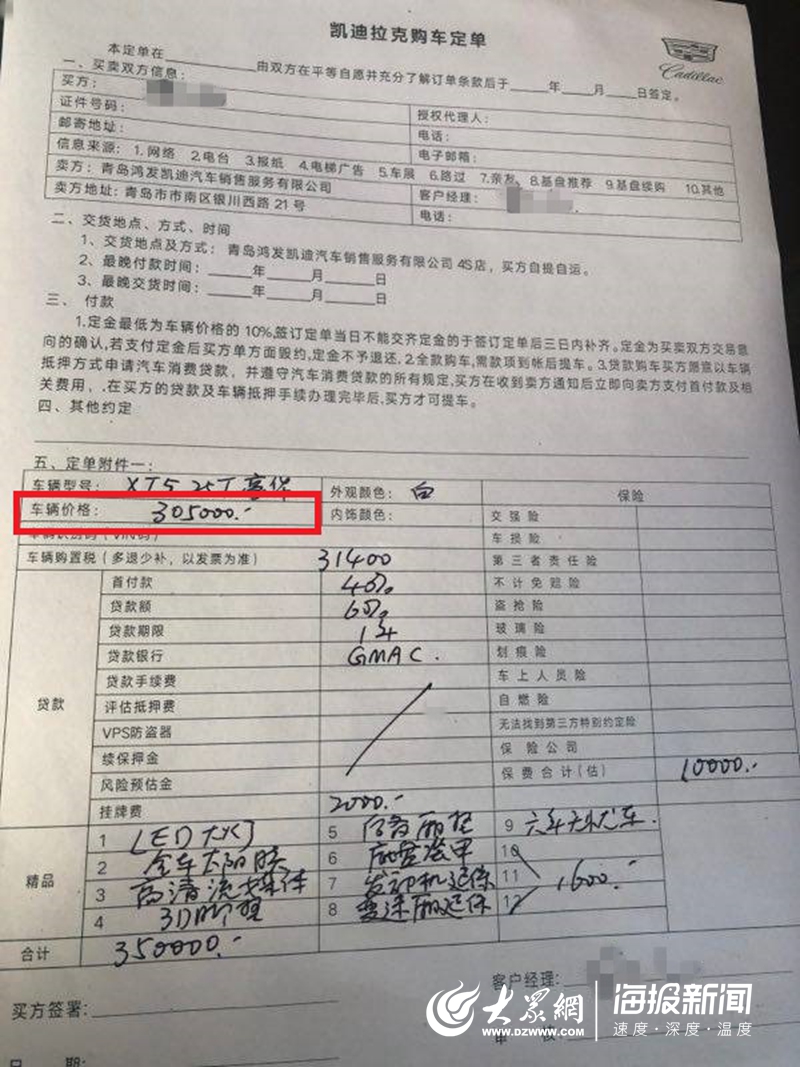 凯迪拉克购车定单
Cadillac
本定单在________由双方在平等自愿并充分了解订单条款后于____年____月____日签定。
一、买卖双方信息:
买方:
证件号码: 授权代理人:
邮寄地址: 电话:
电子邮箱:
信息来源: 1.网络 2.电台 3.报纸 4.电梯广告 5.车展 6.路过 7.亲友 8.基盘推荐 9.基盘续购 10.其他
卖方: 青岛鸿发凯迪汽车销售服务有限公司 客户经理:
卖方地址: 青岛市市南区银川西路21号 电话:
二、交货地点、方式、时间
1、交货地点及方式: 青岛鸿发凯迪汽车销售服务有限公司4S店,买方自提自运。
2、最晚付款时间:____年____月____日
3、最晚交货时间:____年____月____日
三、付款
1.定金最低为车辆价格的10%,签订定单当日不能交齐定金的于签订定单后三日内补齐。定金为买卖双方交易意
向的确认,若支付定金后买方单方面毁约,定金不予退还.2.全款购车,需款项到帐后提车。3.贷款购车买方愿意以车辆
抵押方式申请汽车消费贷款,并遵守汽车消费贷款的所有规定,买方在收到卖方通知后立即向卖方支付首付款及相
关费用,.在买方的贷款及车辆抵押手续办理完毕后,买方才可提车。
四、其他约定
五、定单附件一:
车辆型号: XT5 25T 豪华 外观颜色: 白 保险
车辆价格: 305000.- 内饰颜色: 交强险
车损险
车辆购置税(多退少补,以发票为准) 31400 第三者责任险
贷款 首付款 40% 不计免赔险
贷款额 60% 盗抢险
贷款期限 1年 玻璃险
贷款银行 GMAC. 划痕险
贷款手续费 车上人员险
评估抵押费 自燃险
VPS防盗器 无法找到第三方特别约定险
续保押金 保险公司
风险预估金 保费合计(估) 10000.-
挂牌费 2000.-
精品 1 LED大灯 5 9
2 全车太阳膜 6 底盘装甲 10
3 高清流媒体 7 发动机延保 11 1600.-
4 3D脚垫 8 变速箱延保 12
合计 350000.-
买方签署: 客户经理:
日期: 审核:
大众网
www.dzwww.com
海报新闻
速度·深度·温度